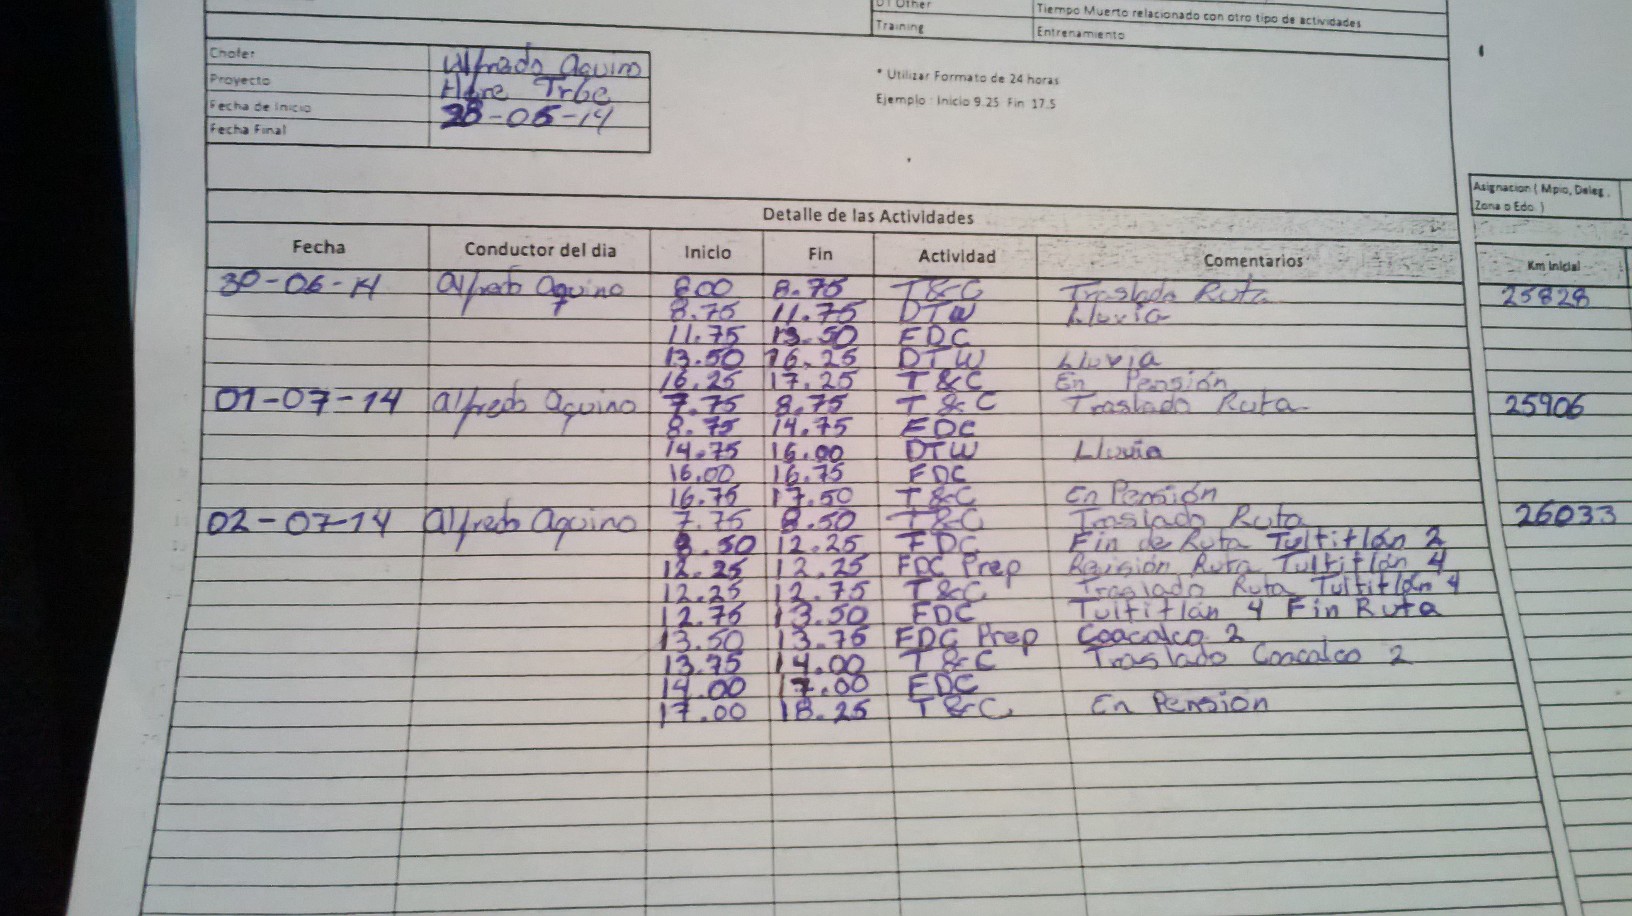 DT Other Tiempo Muerto relacionado con otro tipo de actividades
Training Entrenamiento
Chofer Alfredo Aquino
Proyecto
Fecha de Inicio 28-06-14
Fecha Final
* Utilizar Formato de 24 horas
Ejemplo : Inicio 9.25 Fin 17.5
Asignacion ( Mpio, Deleg.
Zona o Edo. )
Detalle de las Actividades
Fecha Conductor del dia Inicio Fin Actividad Comentarios Km Inicial
30-06-14 Alfredo Aquino 8.00 8.75 T&C Traslado Ruta 25828
8.75 11.75 DTW Lluvia
11.75 13.50 FDC
13.50 16.25 DTW Lluvia
16.25 17.25 T&C En Pensión
01-07-14 Alfredo Aquino 7.75 8.75 T&C Traslado Ruta 25906
8.75 14.75 FDC
14.75 16.00 DTW Lluvia
16.00 16.75 FDC
16.75 17.50 T&C En Pensión
02-07-14 Alfredo Aquino 7.75 8.50 T&C Traslado Ruta 26033
8.50 12.25 FDC Fin de Ruta Tultitlán 2
12.25 12.25 FDC Prep Revisión Ruta Tultitlán 4
12.25 12.75 T&C Traslado Ruta Tultitlán 4
12.75 13.50 FDC Tultitlán 4 Fin Ruta
13.50 13.75 FDC Prep Coacalco 2
13.75 14.00 T&C Traslado Coacalco 2
14.00 17.00 FDC
17.00 18.25 T&C En Pensión